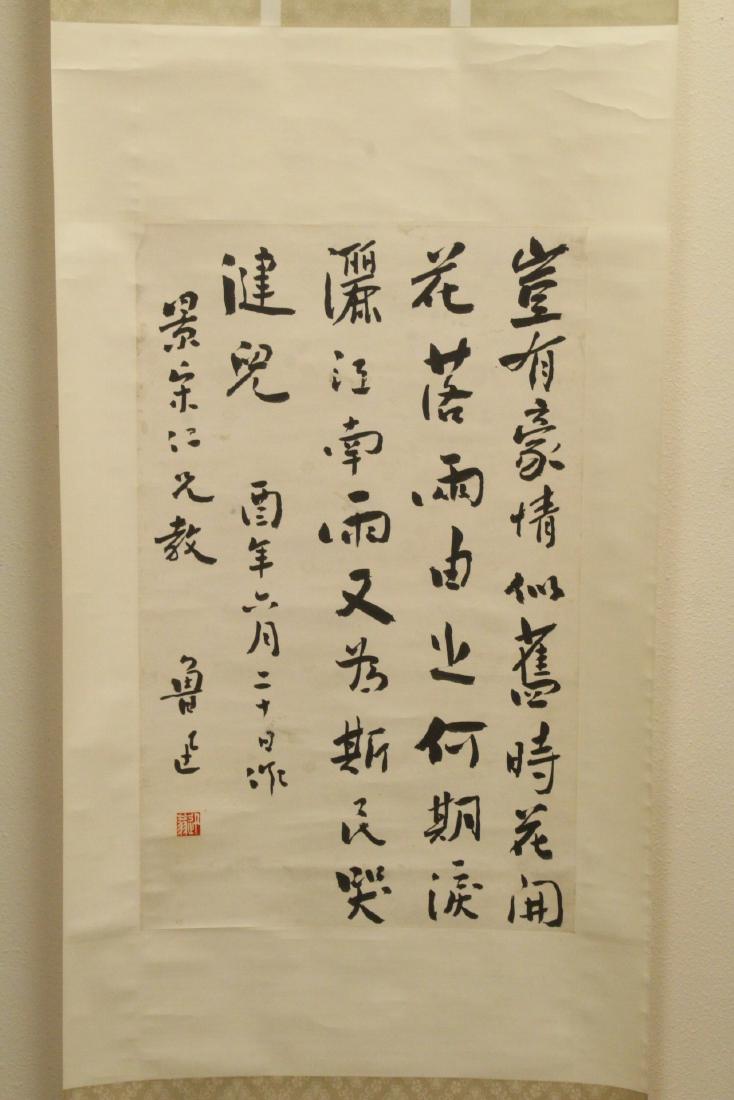 豈有豪情似舊時花開
花落兩由之何期淚
灑江南雨又為斯民哭
健兒 酉年六月二十日作
景宋仁兄教 魯迅